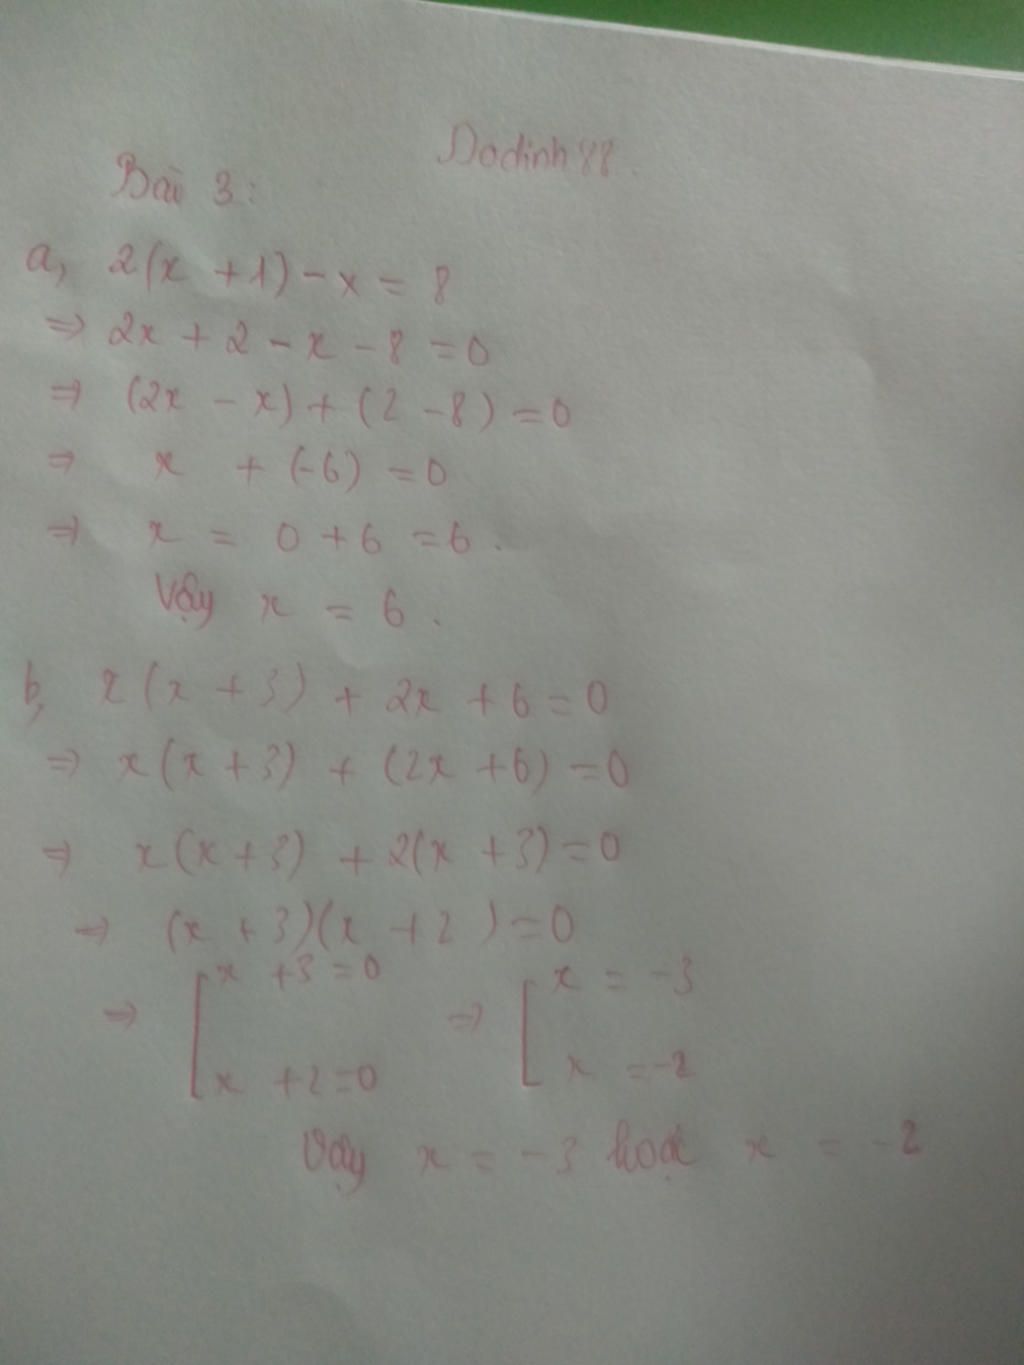 Dodinh88.
Bài 3:
a, 2(x + 1) - x = 8
⇒ 2x + 2 - x - 8 = 0
⇒ (2x - x) + (2 - 8) = 0
⇒ x + (-6) = 0
⇒ x = 0 + 6 = 6.
Vậy x = 6.
b, x(x + 3) + 2x + 6 = 0
⇒ x(x + 3) + (2x + 6) = 0
⇒ x(x + 3) + 2(x + 3) = 0
⇒ (x + 3)(x + 2) = 0
⇒ [ x + 3 = 0 ⇒ [ x = -3
x + 2 = 0 x = -2
Vậy x = -3 hoặc x = -2